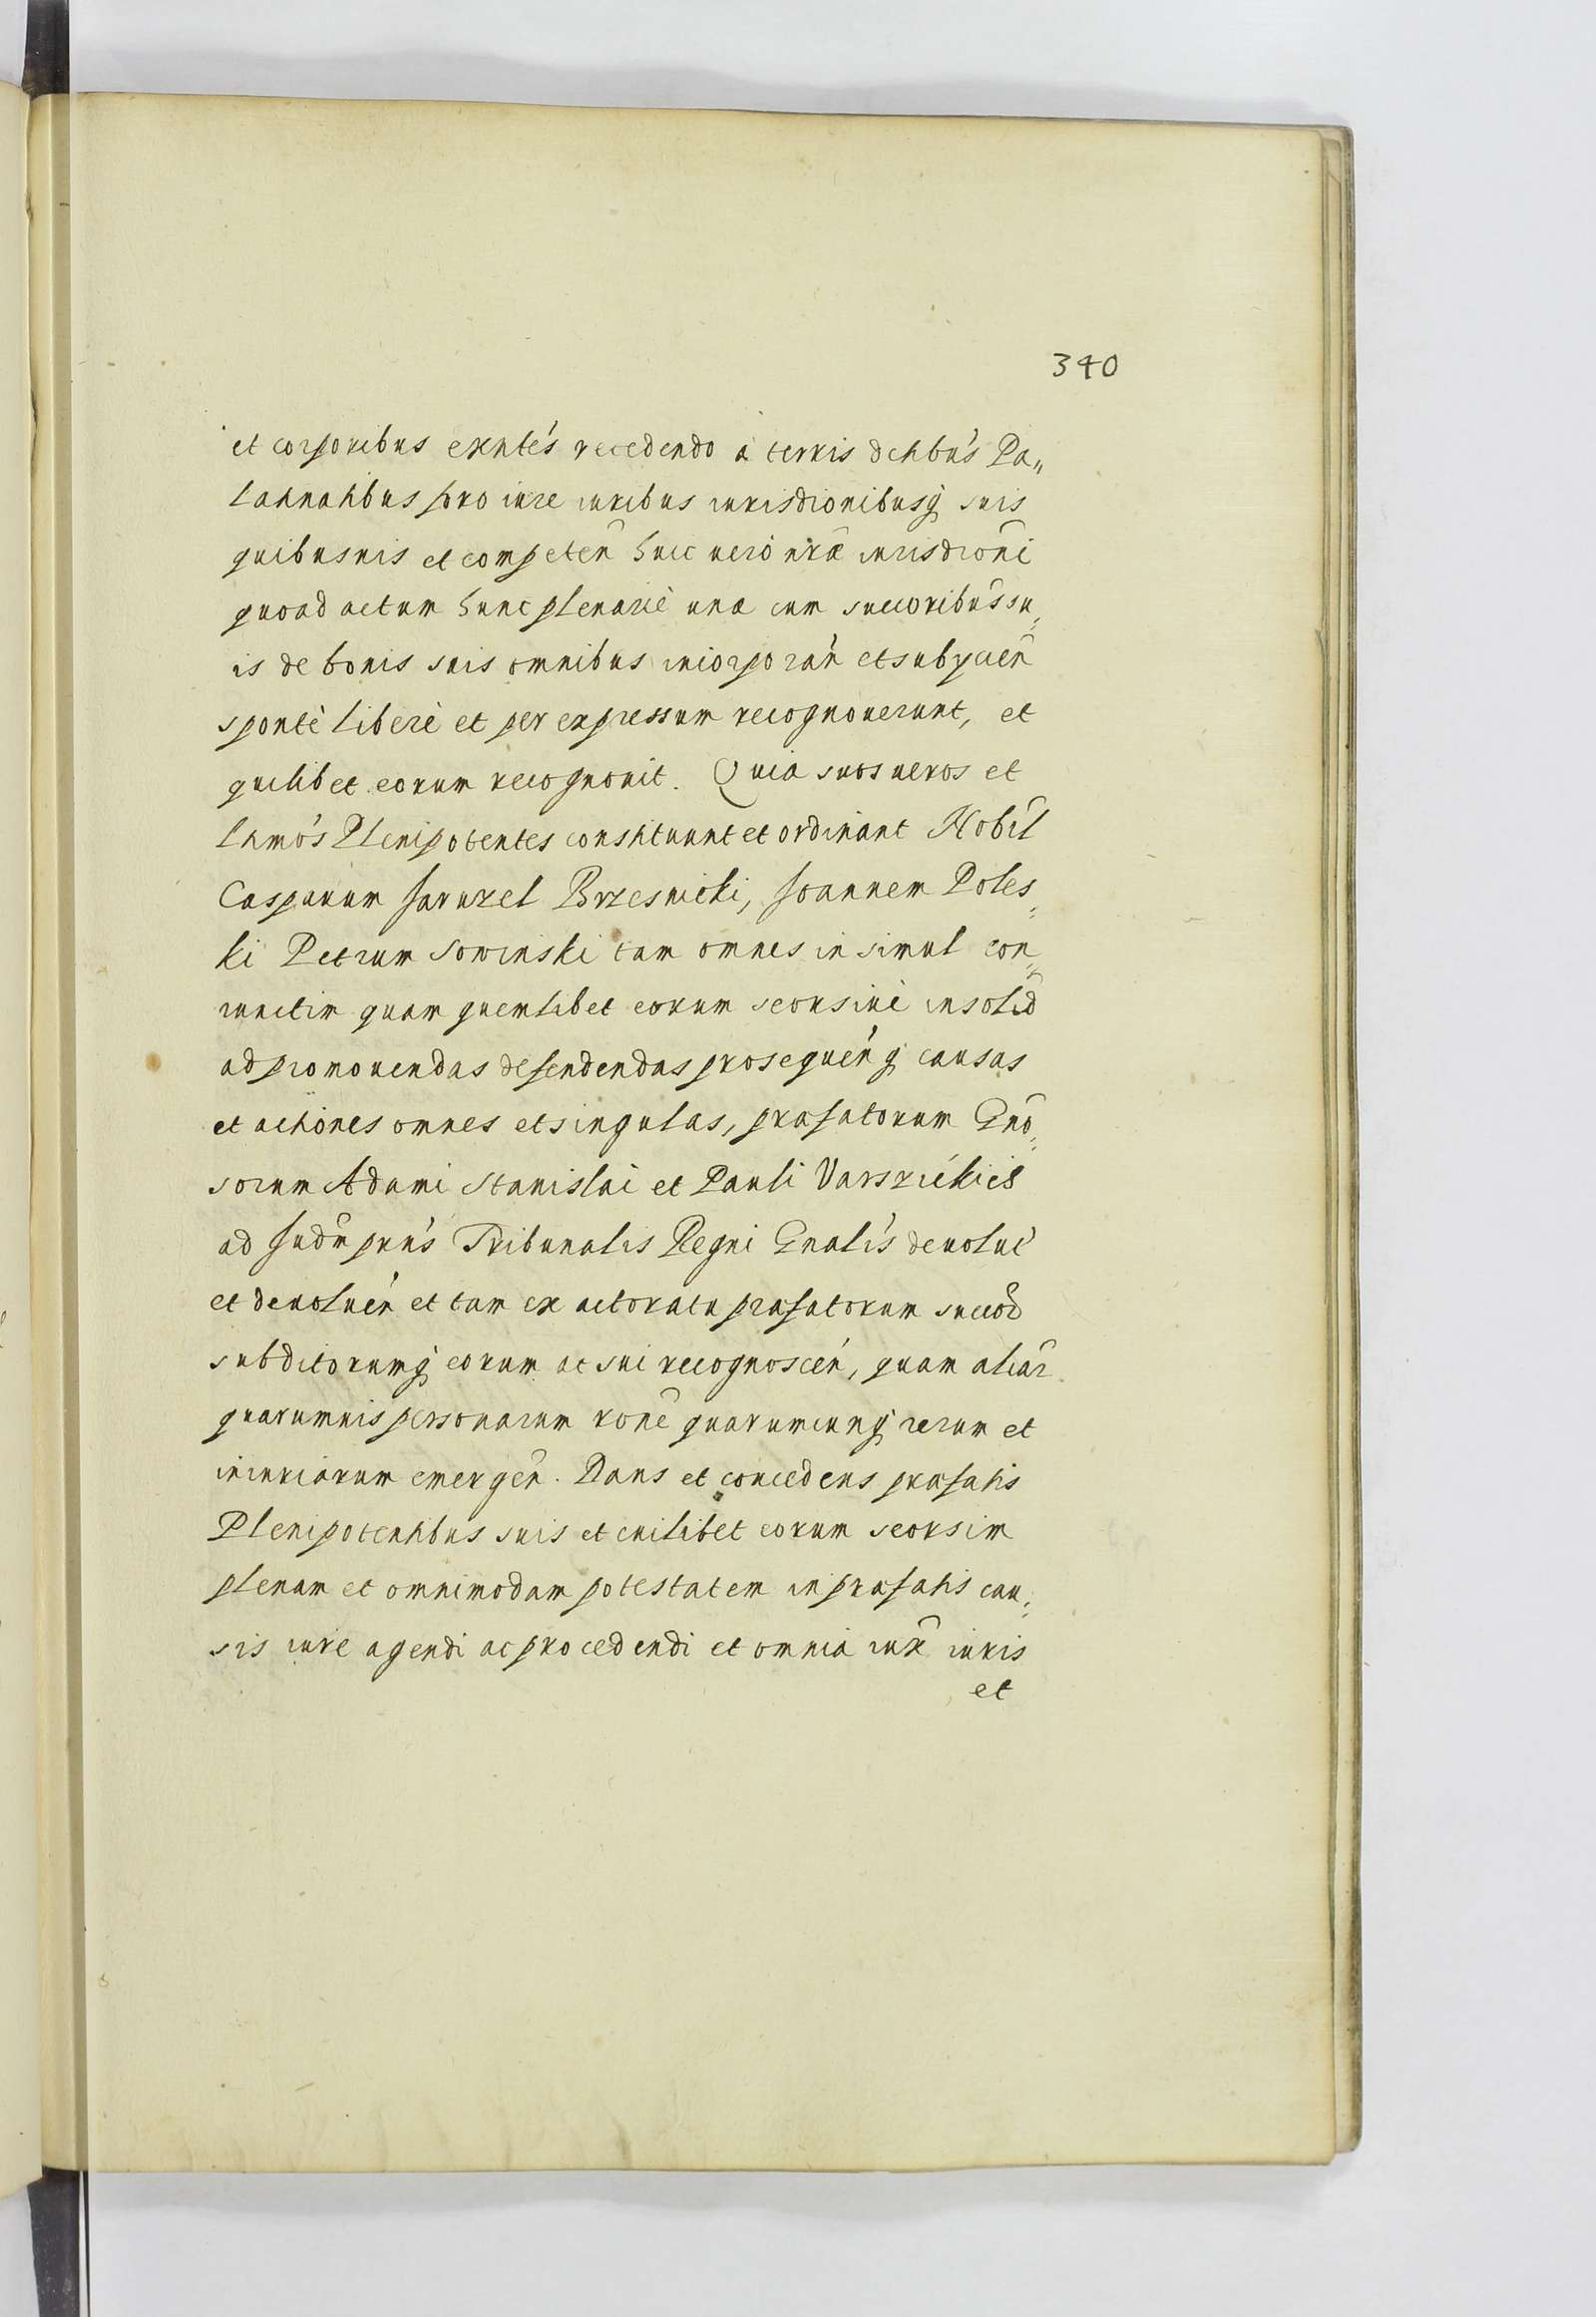 340
et corporibus exntes recedendo à terris dctibus Pa„
latinatibus pro iure iuribus iurisdionibusq suis
quibusuis et competen̄ huic uerò nr̄æ iurisdioni
quoad actum hunc plenariè una cum succoribus su„
is de bonis suis omnibus incorporan̄ et subycien̄
spontè liberè et per expressum recognouerunt, et
quilibet eorum recognouit. Quia suos ueros et
ltmos Plenipotentes constituunt et ordinant Nobil
Casparum Brzesnicki, Ioannem Poles„
ki Petrum Sowinski tam omnes in simul con„
iunctim quam quemlibet eorum seorsiuè in solid
ad promouendas defendendas prosequenq causas
et actiones omnes et singulas, præfatorum Gno„
sorum Adami Stanislai et Pauli Varszickich
ad Iudm prns Tribunalis Regni Gnalis deuolut
et deuoluen̄ et tam ex actoratu præfatorum succor̄
subditorumq eorum ac sui recognoscen̄, quam aliar̄
quarumuis personarum rone quarumcunq rerum et
iniuriarum emergen̄. Dans et concedens præfatis
Plenipotentibus suis et cuilibet eorum seorsim
plenam et omnimodam potestatem in præfatis cau„
sis iure agendi ac procedendi et omnia iux iuris
et